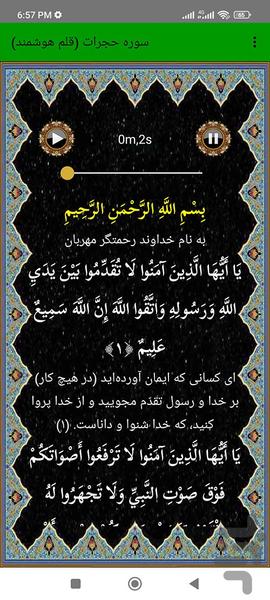 6:57 PM
سوره حجرات (قلم هوشمند)
0m,2s
بِسْمِ اللَّهِ الرَّحْمَنِ الرَّحِيمِ
به نام خداوند رحمتگر مهربان
يَا أَيُّهَا الَّذِينَ آمَنُوا لَا تُقَدِّمُوا بَيْنَ يَدَيِ
اللَّهِ وَرَسُولِهِ وَاتَّقُوا اللَّهَ إِنَّ اللَّهَ سَمِيعٌ
عَلِيمٌ ﴿١﴾
ای کسانی که ایمان آورده‌اید (در هیچ کار)
بر خدا و رسول تقدّم مجویید و از خدا پروا
کنید، که خدا شنوا و داناست. (۱)
يَا أَيُّهَا الَّذِينَ آمَنُوا لَا تَرْفَعُوا أَصْوَاتَكُمْ
فَوْقَ صَوْتِ النَّبِيِّ وَلَا تَجْهَرُوا لَهُ